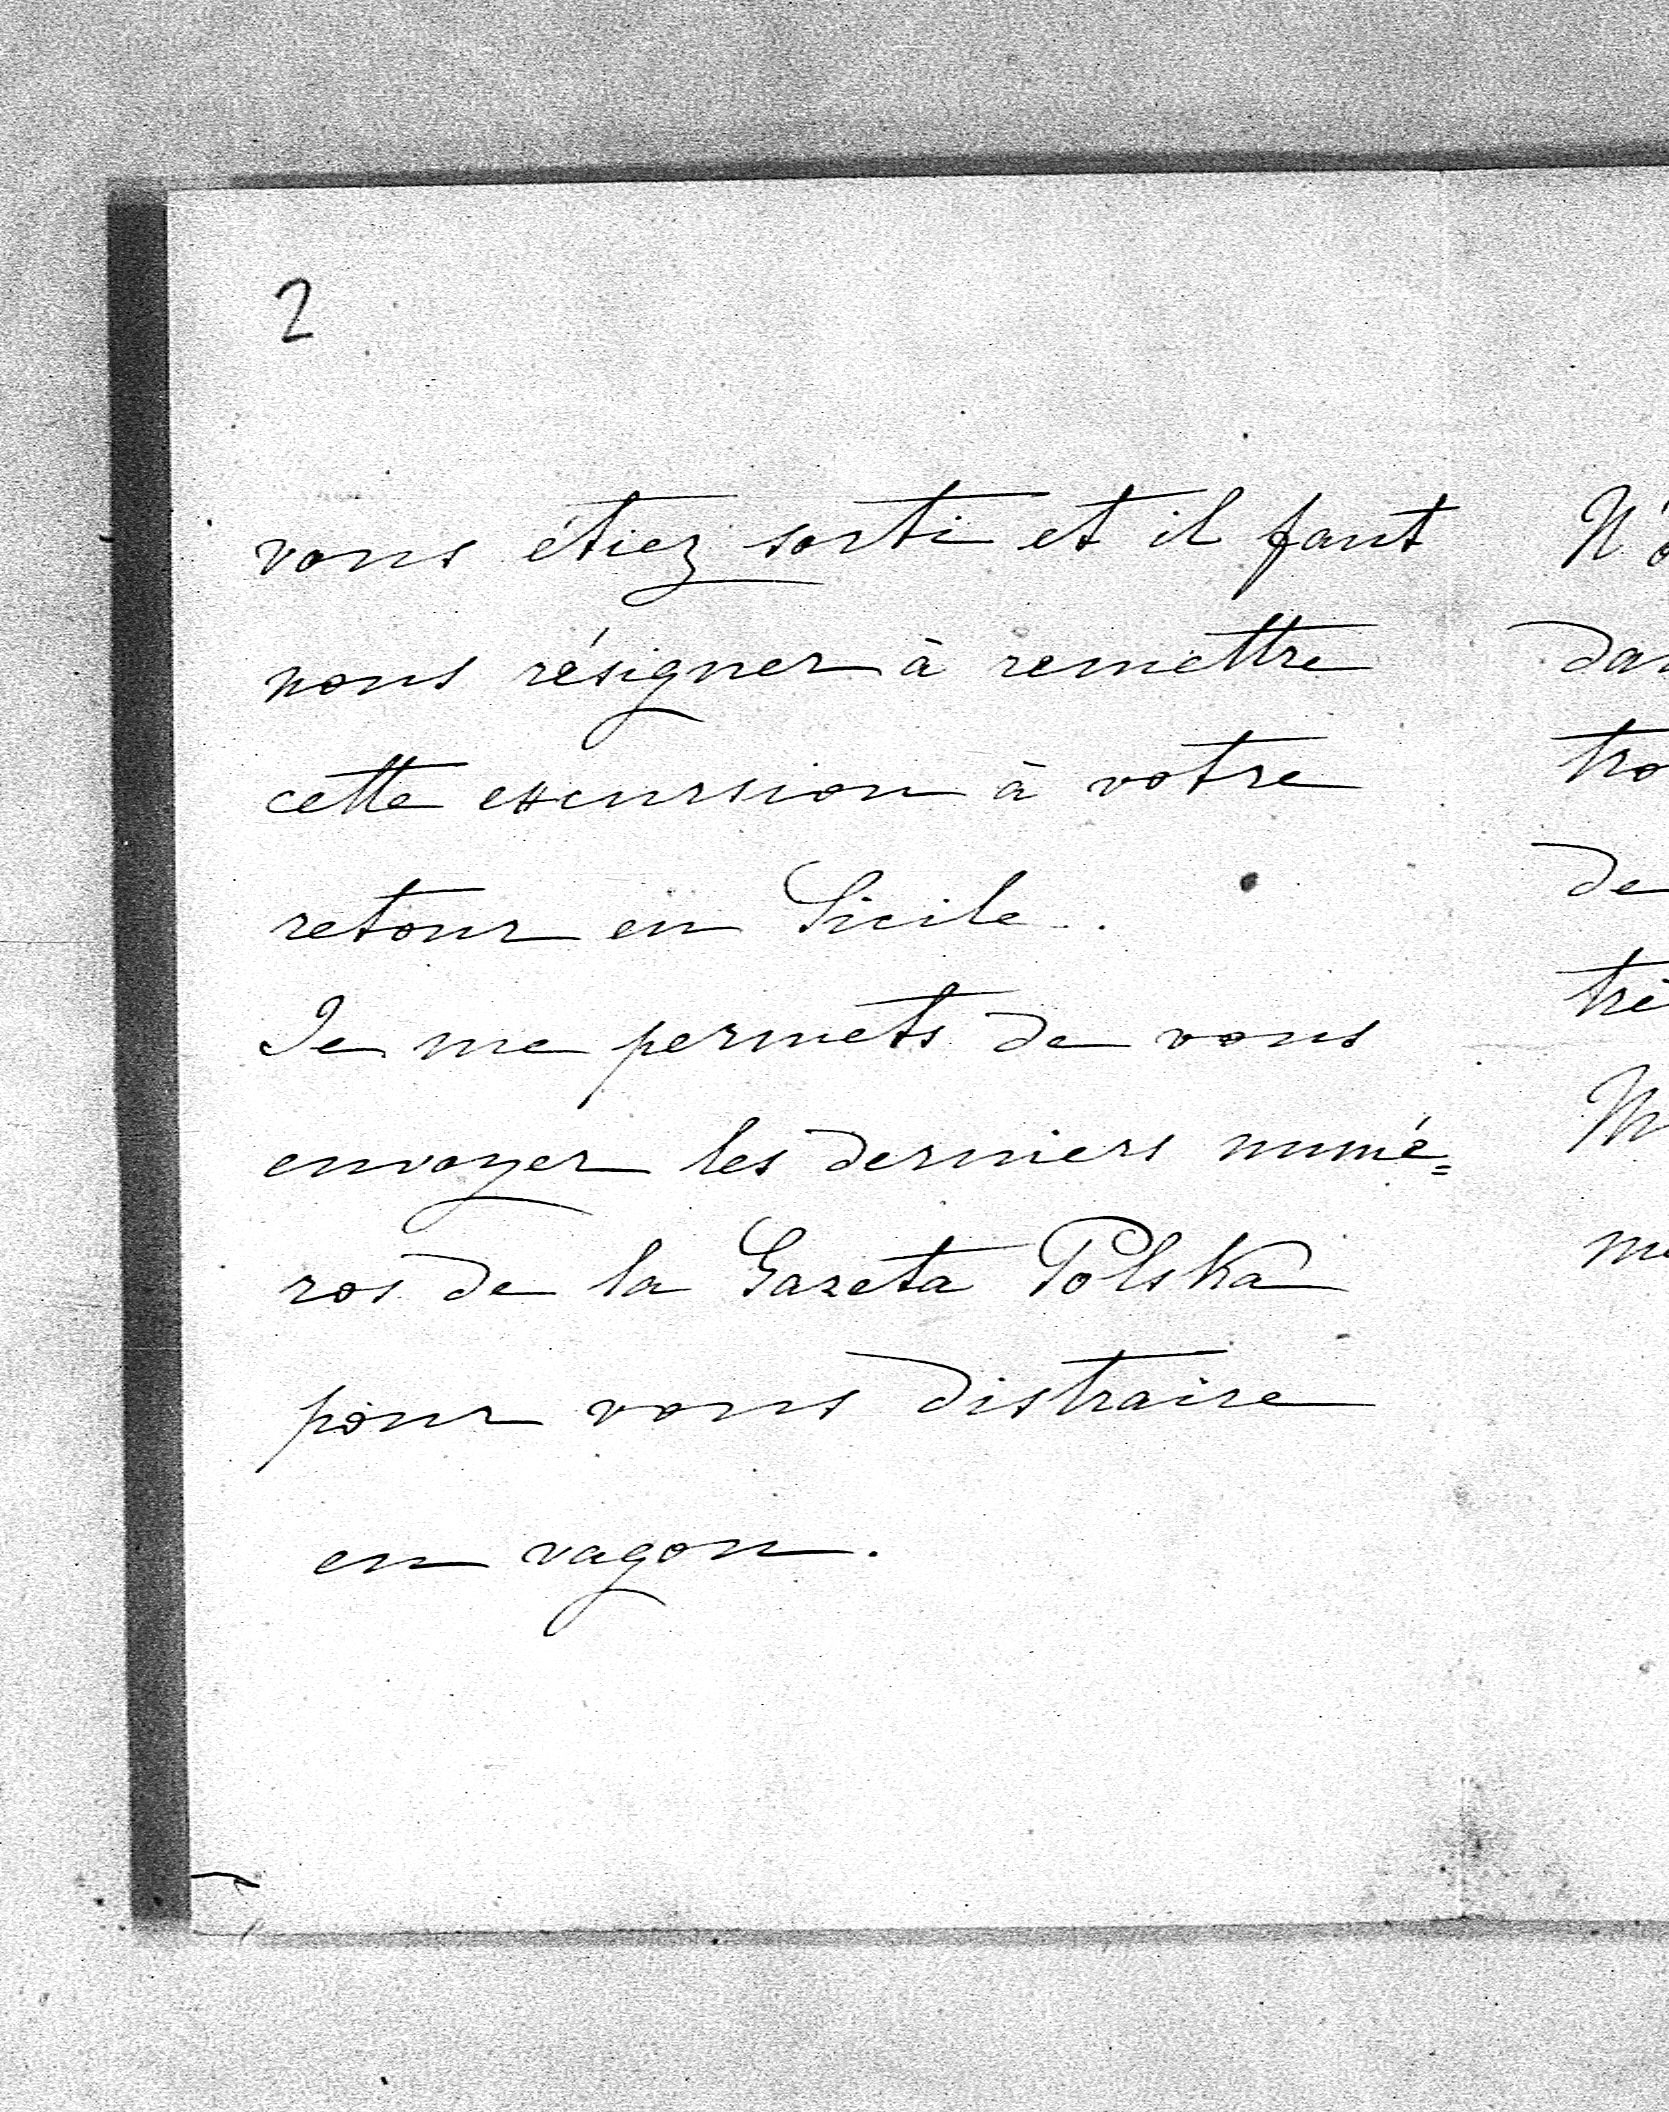 2
vous étiez sorti et il faut
nous résigner à remettre
cette excursion à votre
retour en Sicile.
Je me permets de vous
envoyer les derniers numé=
ros de la Gazeta Polska
pour vous distraire
en vagon.
dan
tro
de
trè